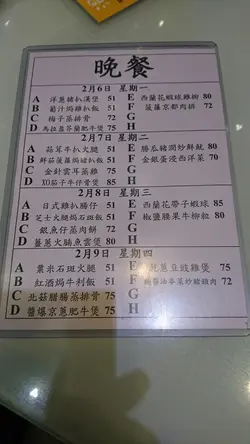 晚餐
2月6日 星期一
A 洋蔥豬扒漢堡 51 E 西蘭花蝦球雞柳 80
B 葡汁焗雞扒飯 51 F 菠蘿京都肉排 72
C 梅子蒸排骨 72 G
D 馬拉盞芥蘭肥牛煲 75 H
2月7日 星期二
A 蒜茸牛扒火腿 51 E 勝瓜豬潤炒鮮魷 80
B 鮮茄菠蘿焗豬扒飯 51 F 金銀蛋浸西洋菜 70
C 金針雲耳蒸雞 75 G
D XO茄子牛仔骨煲 85 H
2月8日 星期三
A 日式雞扒腸仔 51 E 西蘭花帶子蝦球 85
B 芝士火腿焗石斑飯 51 F 椒鹽腰果牛柳粒 80
C 銀魚仔蒸肉餅 72 G
D 薑蔥火腩魚雲煲 80 H
2月9日 星期四
A 粟米石斑火腿 51 E 蔥豆豉雞煲 75
B 紅酒焗牛利飯 51 F 菜炒豬頸肉 72
C 北菇臘腸蒸排骨 75 G
D 醬爆京蔥肥牛煲 75 H